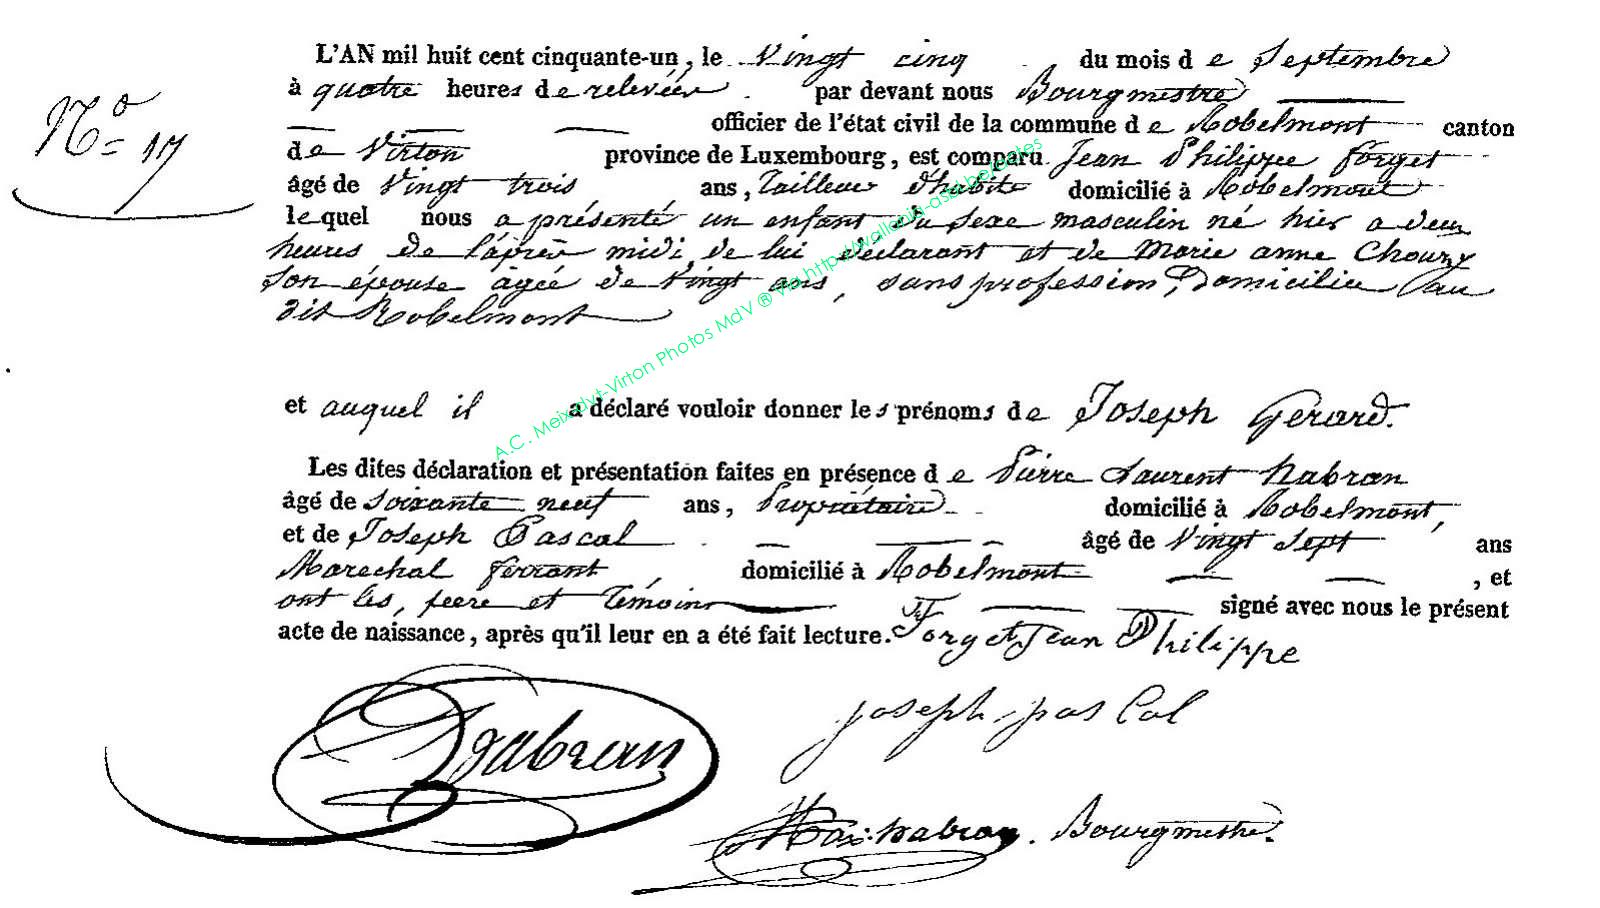 L'AN mil huit cent cinquante-un, le Vingt cinq du mois de Septembre
à quatre heures de relevéér par devant nous Bourgmestre
Nº 17
officier de l'état civil de la commune de Robelmont canton
de Virton province de Luxembourg, est comparu Jean Philippe forget
âgé de Vingt trois ans, Tailleur d'habits domicilié à Robelmont
lequel nous a présenté un enfant du sexe masculin né hier a deux
heures de l'après midi, de lui déclarant et de Marie anne
son épouse agée de Vingt ans, sans profession, Domiciliée au
dit Robelmont
et auquel il a déclaré vouloir donner les prénoms de Joseph Gerard.
Les dites déclaration et présentation faites en présence de Pierre Laurent habran
âgé de soixante neuf ans, Propriétaire domicilié à Robelmont,
et de Joseph Pascal âgé de Vingt sept ans
Marechal ferrant, domicilié à Robelmont, et
ont les, peere et Témoins signé avec nous le présent
acte de naissance, après qu'il leur en a été fait lecture. Forget Jean Philippe
joseph pascal
habran
habran. Bourgmestre.
A.C. Meix-dvt-Virton Photos MdV ® Via http://wallonia-asbl.be/actes